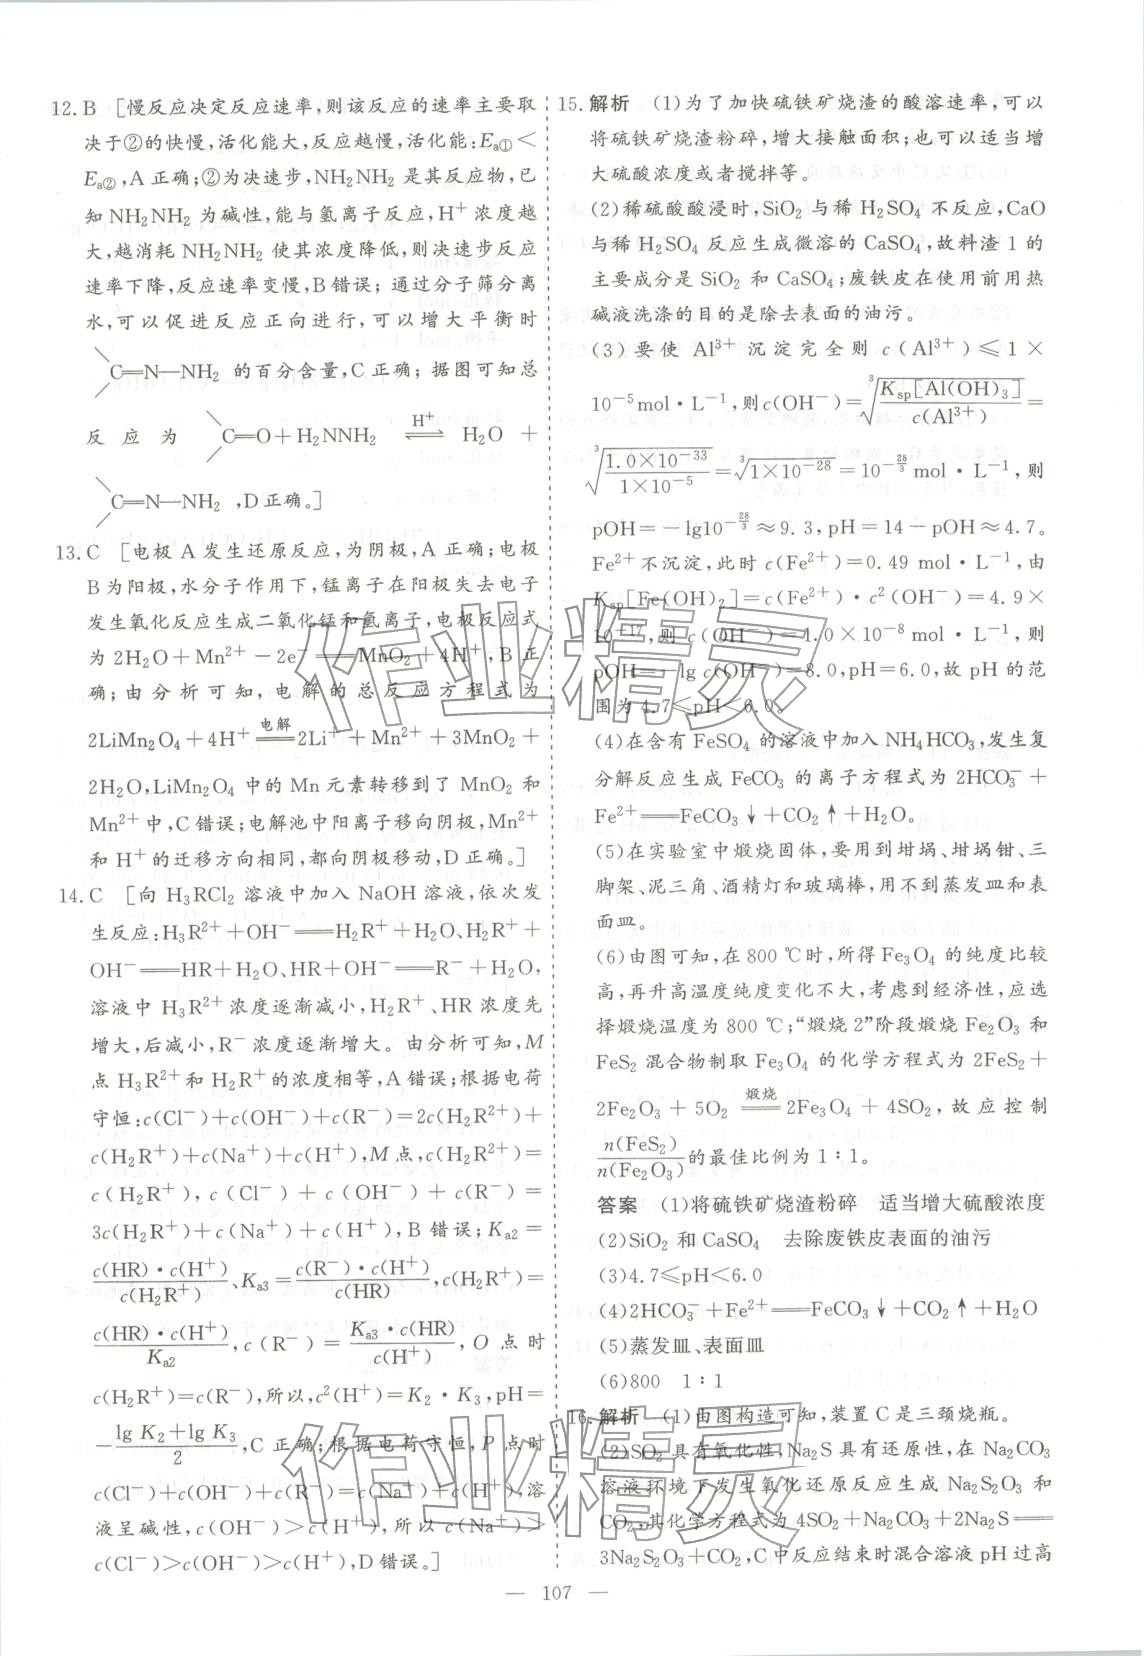 12. B [慢反应决定反应速率,则该反应的速率主要取
决于②的快慢,活化能大,反应越慢,活化能:Ea①<
Ea②,A 正确;②为决速步,NH2NH2 是其反应物,已
知 NH2NH2 为碱性,能与氢离子反应,H+浓度越
大,越消耗 NH2NH2 使其浓度降低,则决速步反应
速率下降,反应速率变慢,B错误;通过分子筛分离
水,可以促进反应正向进行,可以增大平衡时
C=N—NH2 的百分含量,C正确;据图可知总
反应为 C=O+H2NNH2 ⇌(H+) H2O +
C=N—NH2 ,D正确。]
13. C [电极 A 发生还原反应,为阴极,A 正确;电极
B为阳极,水分子作用下,锰离子在阳极失去电子
发生氧化反应生成二氧化锰和氢离子,电极反应式
为 2H2O+Mn2+-2e-══MnO2+4H+,B 正
确;由分析可知,电解的总反应方程式为
2LiMn2O4+4H+ ══(电解) 2Li++Mn2++3MnO2+
2H2O,LiMn2O4 中的 Mn 元素转移到了 MnO2 和
Mn2+中,C错误;电解池中阳离子移向阴极,Mn2+
和 H+的迁移方向相同,都向阴极移动,D正确。]
14. C [向 H3RCl2 溶液中加入 NaOH 溶液,依次发
生反应:H3R2++OH-══H2R++H2O、H2R++
OH-══HR+H2O、HR+OH-══R-+H2O,
溶液中 H3R2+浓度逐渐减小,H2R+、HR 浓度先
增大,后减小,R-浓度逐渐增大。由分析可知,M
点 H3R2+和 H2R+的浓度相等,A错误;根据电荷
守恒:c(Cl-)+c(OH-)+c(R-)=2c(H2R+)+
c(H2R+)+c(Na+)+c(H+),M 点,c(H2R+)=
c(H2R+),c(Cl-)+c(OH-)+c(R-)=
3c(H2R+)+c(Na+)+c(H+),B 错误;Ka2=
c(HR)·c(H+)/c(H2R+)、Ka3=c(R-)·c(H+)/c(HR),c(H2R+)=
c(HR)·c(H+)/Ka2,c(R-)=Ka3·c(HR)/c(H+),O 点时
c(H2R+)=c(R-),所以,c2(H+)=K2·K3,pH=
-(lg K2+lg K3)/2,C正确;根据电荷守恒,P 点时
c(Cl-)+c(OH-)+c(R-)=c(Na+)+c(H+),溶
液呈碱性,c(OH-)>c(H+),所以 c(Na+)>
c(Cl-)>c(OH-)>c(H+),D错误。]
15. 解析 (1)为了加快硫铁矿烧渣的酸溶速率,可以
将硫铁矿烧渣粉碎,增大接触面积;也可以适当增
大硫酸浓度或者搅拌等。
(2)稀硫酸酸浸时,SiO2 与稀 H2SO4 不反应,CaO
与稀 H2SO4 反应生成微溶的 CaSO4,故料渣 1 的
主要成分是 SiO2 和 CaSO4;废铁皮在使用前用热
碱液洗涤的目的是除去表面的油污。
(3)要使 Al3+沉淀完全则 c(Al3+)≤1×
10-5mol·L-1,则c(OH-)=∛(Ksp[Al(OH)3]/c(Al3+))=
∛(1.0×10-33/1×10-5)=∛(1×10-28)=10-28/3 mol·L-1,则
pOH=-lg10-28/3≈9.3,pH=14-pOH≈4.7。
Fe2+不沉淀,此时 c(Fe2+)=0.49 mol·L-1,由
Ksp[Fe(OH)2]=c(Fe2+)·c2(OH-)=4.9×
10-17,则 c(OH-)=1.0×10-8 mol·L-1,则
pOH=-lg c(OH-)=8.0,pH=6.0,故 pH 的范
围为 4.7≤pH<6.0。
(4)在含有 FeSO4 的溶液中加入 NH4HCO3,发生复
分解反应生成 FeCO3 的离子方程式为 2HCO3-+
Fe2+══FeCO3↓+CO2↑+H2O。
(5)在实验室中煅烧固体,要用到坩埚、坩埚钳、三
脚架、泥三角、酒精灯和玻璃棒,用不到蒸发皿和表
面皿。
(6)由图可知,在 800 ℃时,所得 Fe3O4 的纯度比较
高,再升高温度纯度变化不大,考虑到经济性,应选
择煅烧温度为 800 ℃;“煅烧 2”阶段煅烧 Fe2O3 和
FeS2 混合物制取 Fe3O4 的化学方程式为 2FeS2+
2Fe2O3+5O2 ══(煅烧) 2Fe3O4+4SO2,故应控制
n(FeS2)/n(Fe2O3)的最佳比例为 1∶1。
答案 (1)将硫铁矿烧渣粉碎 适当增大硫酸浓度
(2)SiO2 和 CaSO4 去除废铁皮表面的油污
(3)4.7≤pH<6.0
(4)2HCO3-+Fe2+══FeCO3↓+CO2↑+H2O
(5)蒸发皿、表面皿
(6)800 1∶1
16. 解析 (1)由图构造可知,装置 C 是三颈烧瓶。
(2)SO2 具有氧化性,Na2S 具有还原性,在 Na2CO3
溶液环境下发生氧化还原反应生成 Na2S2O3 和
CO2,其化学方程式为 4SO2+Na2CO3+2Na2S══
3Na2S2O3+CO2,C 中反应结束时混合溶液 pH 过高
— 107 —
作业精灵
作业精灵